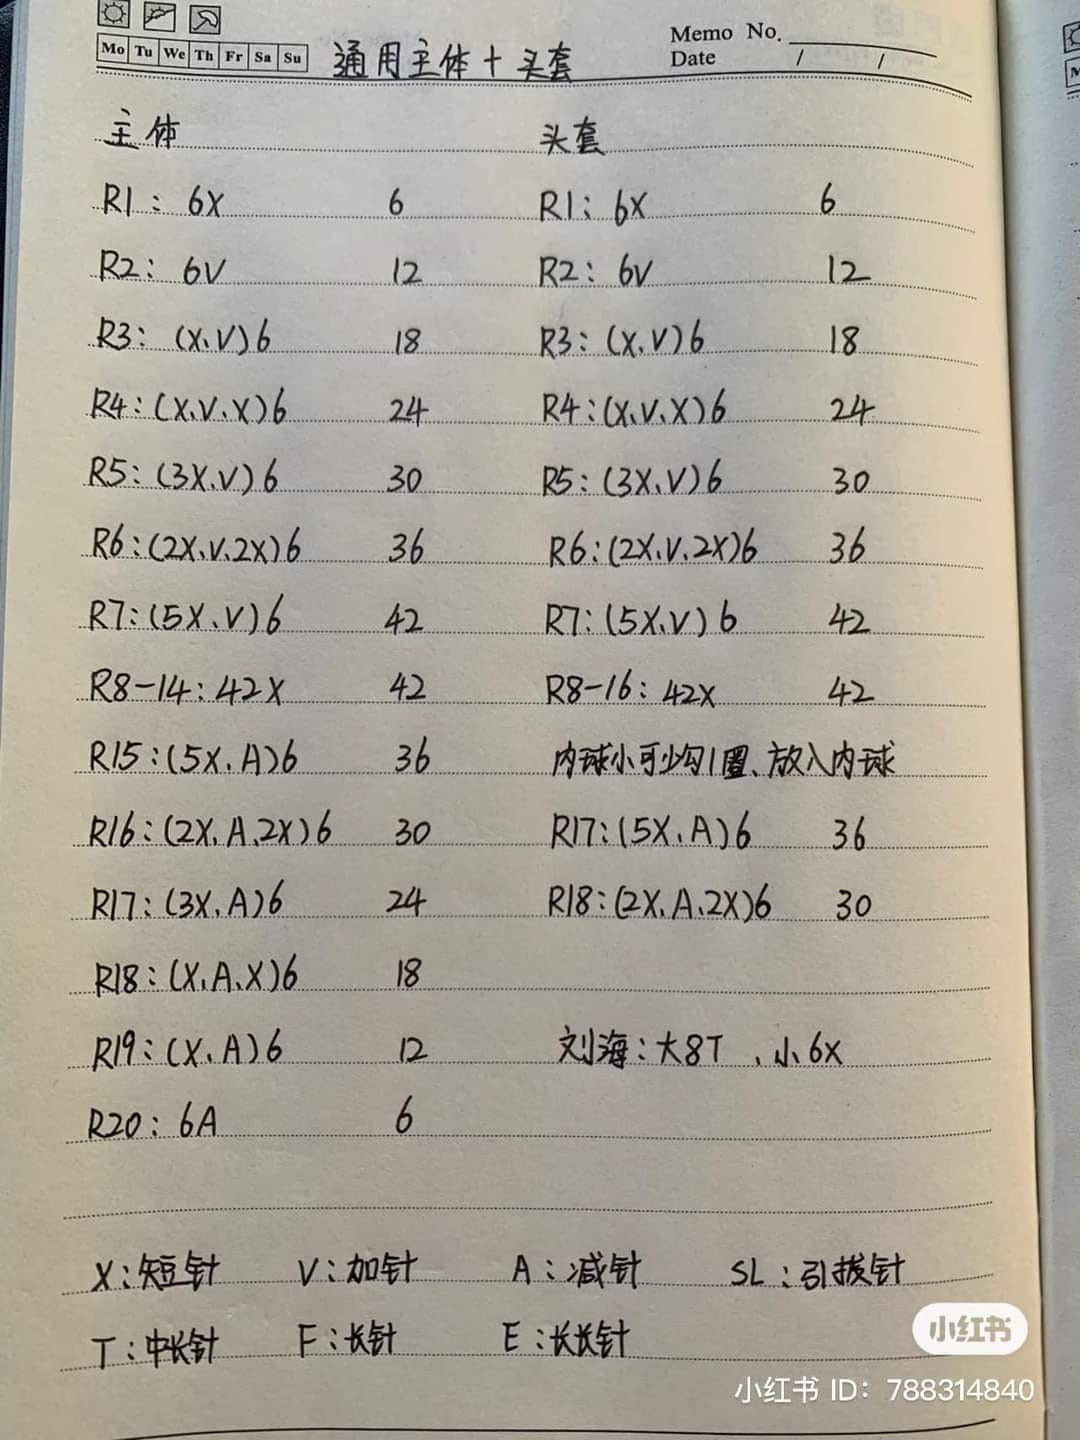 Mo Tu We Th Fr Sa Su
通用主体+头套
Memo No.
Date / /
主体 头套
R1: 6X 6 R1: 6X 6
R2: 6V 12 R2: 6V 12
R3: (X、V)6 18 R3: (X、V)6 18
R4:(X、V、X)6 24 R4:(X、V、X)6 24
R5:(3X、V)6 30 R5:(3X、V)6 30
R6:(2X、V、2X)6 36 R6:(2X、V、2X)6 36
R7:(5X、V)6 42 R7:(5X、V)6 42
R8-14:42X 42 R8-16:42X 42
R15:(5X、A)6 36 内球小可少勾1圈、放入内球
R16:(2X、A、2X)6 30 R17:(5X、A)6 36
R17:(3X、A)6 24 R18:(2X、A、2X)6 30
R18:(X、A、X)6 18
R19:(X、A)6 12 刘海:大8T、小6X
R20: 6A 6
X:短针 V:加针 A:减针 SL:引拔针
T:中长针 F:长针 E:长长针
小红书
小红书 ID: 788314840